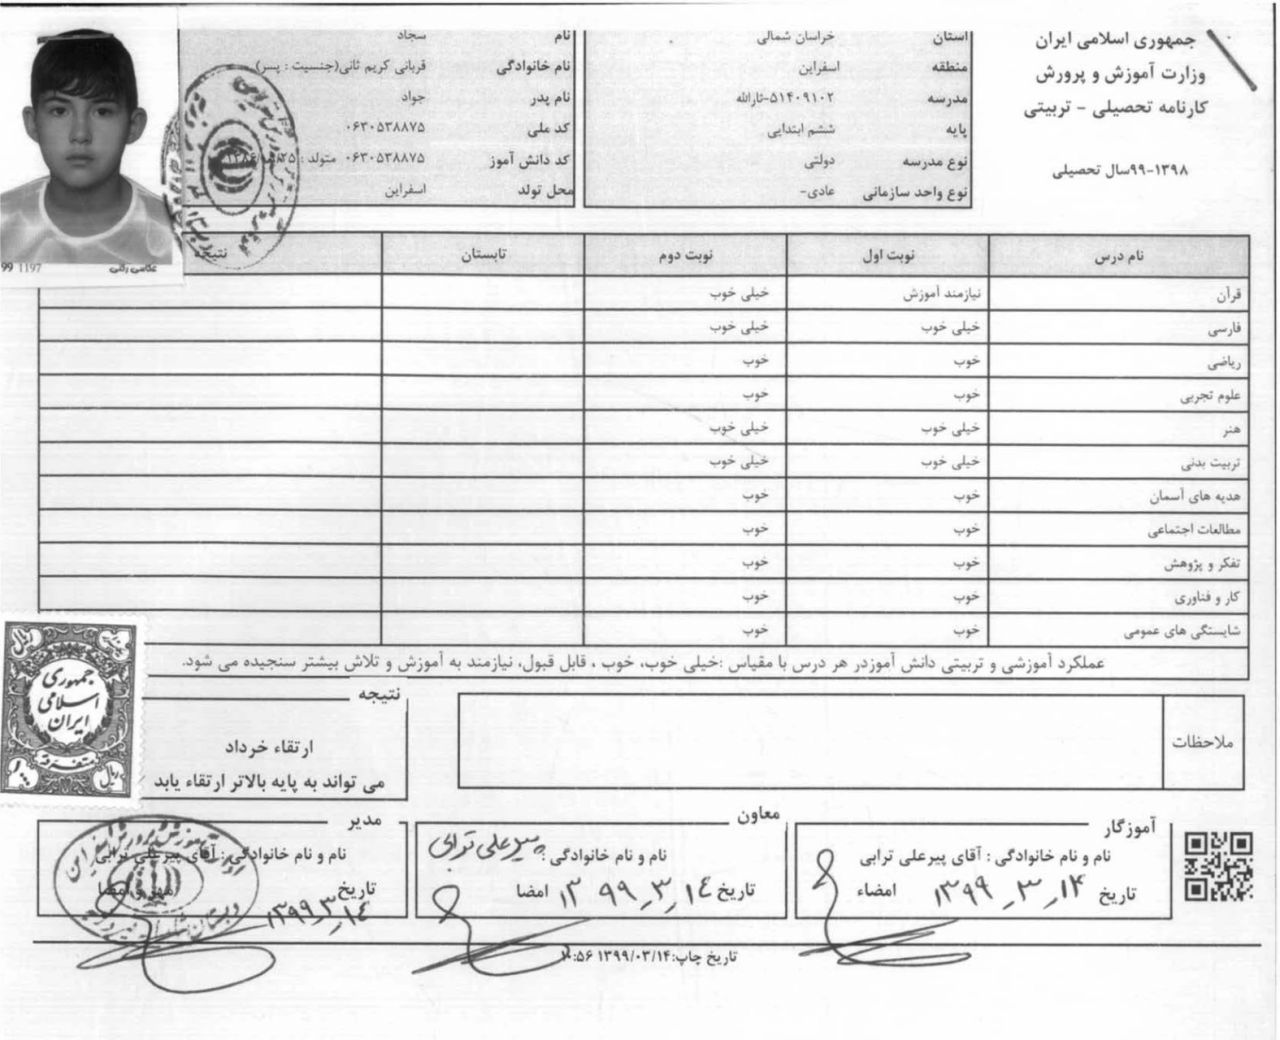 جمهوری اسلامی ایران
وزارت آموزش و پرورش
کارنامه تحصیلی - تربیتی
۹۹-۱۳۹۸سال تحصیلی
استان خراسان شمالی
منطقه اسفراین
مدرسه ۵۱۴۰۹۱۰۲-ثارالله
پایه ششم ابتدایی
نوع مدرسه دولتی
نوع واحد سازمانی عادی-
نام سجاد
نام خانوادگی قربانی کریم ثانی(جنسیت : پسر)
نام پدر جواد
کد ملی ۰۶۳۰۵۳۸۸۷۵
کد دانش آموز ۰۶۳۰۵۳۸۸۷۵ متولد :
محل تولد اسفراین
99 1197 عکاسی
نام درس نوبت اول نوبت دوم تابستان نتیجه
قرآن نیازمند آموزش خیلی خوب
فارسی خیلی خوب خیلی خوب
ریاضی خوب خوب
علوم تجربی خوب خوب
هنر خیلی خوب خیلی خوب
تربیت بدنی خیلی خوب خیلی خوب
هدیه های آسمان خوب خوب
مطالعات اجتماعی خوب خوب
تفکر و پژوهش خوب خوب
کار و فناوری خوب خوب
شایستگی های عمومی خوب خوب
عملکرد آموزشی و تربیتی دانش آموزدر هر درس با مقیاس :خیلی خوب، خوب ، قابل قبول، نیازمند به آموزش و تلاش بیشتر سنجیده می شود.
ملاحظات
نتیجه
ارتقاء خرداد
می تواند به پایه بالاتر ارتقاء یابد
جمهوری
اسلامی
ایران
متفرقه
ریال
آموزگار
نام و نام خانوادگی : آقای پیرعلی ترابی
تاریخ ۱۴_۳_۱۳۹۹ امضاء
معاون
نام و نام خانوادگی : پیرعلی ترابی
تاریخ ۱۴_۳_۹۹ ۱۳ امضا
مدیر
نام و نام خانوادگی : آقای پیرعلی ترابی
تاریخ ۱۴_۳_۱۳۹۹ مهر امضا
تاریخ چاپ:۱۳۹۹/۰۳/۱۴ ۱۰:۵۶